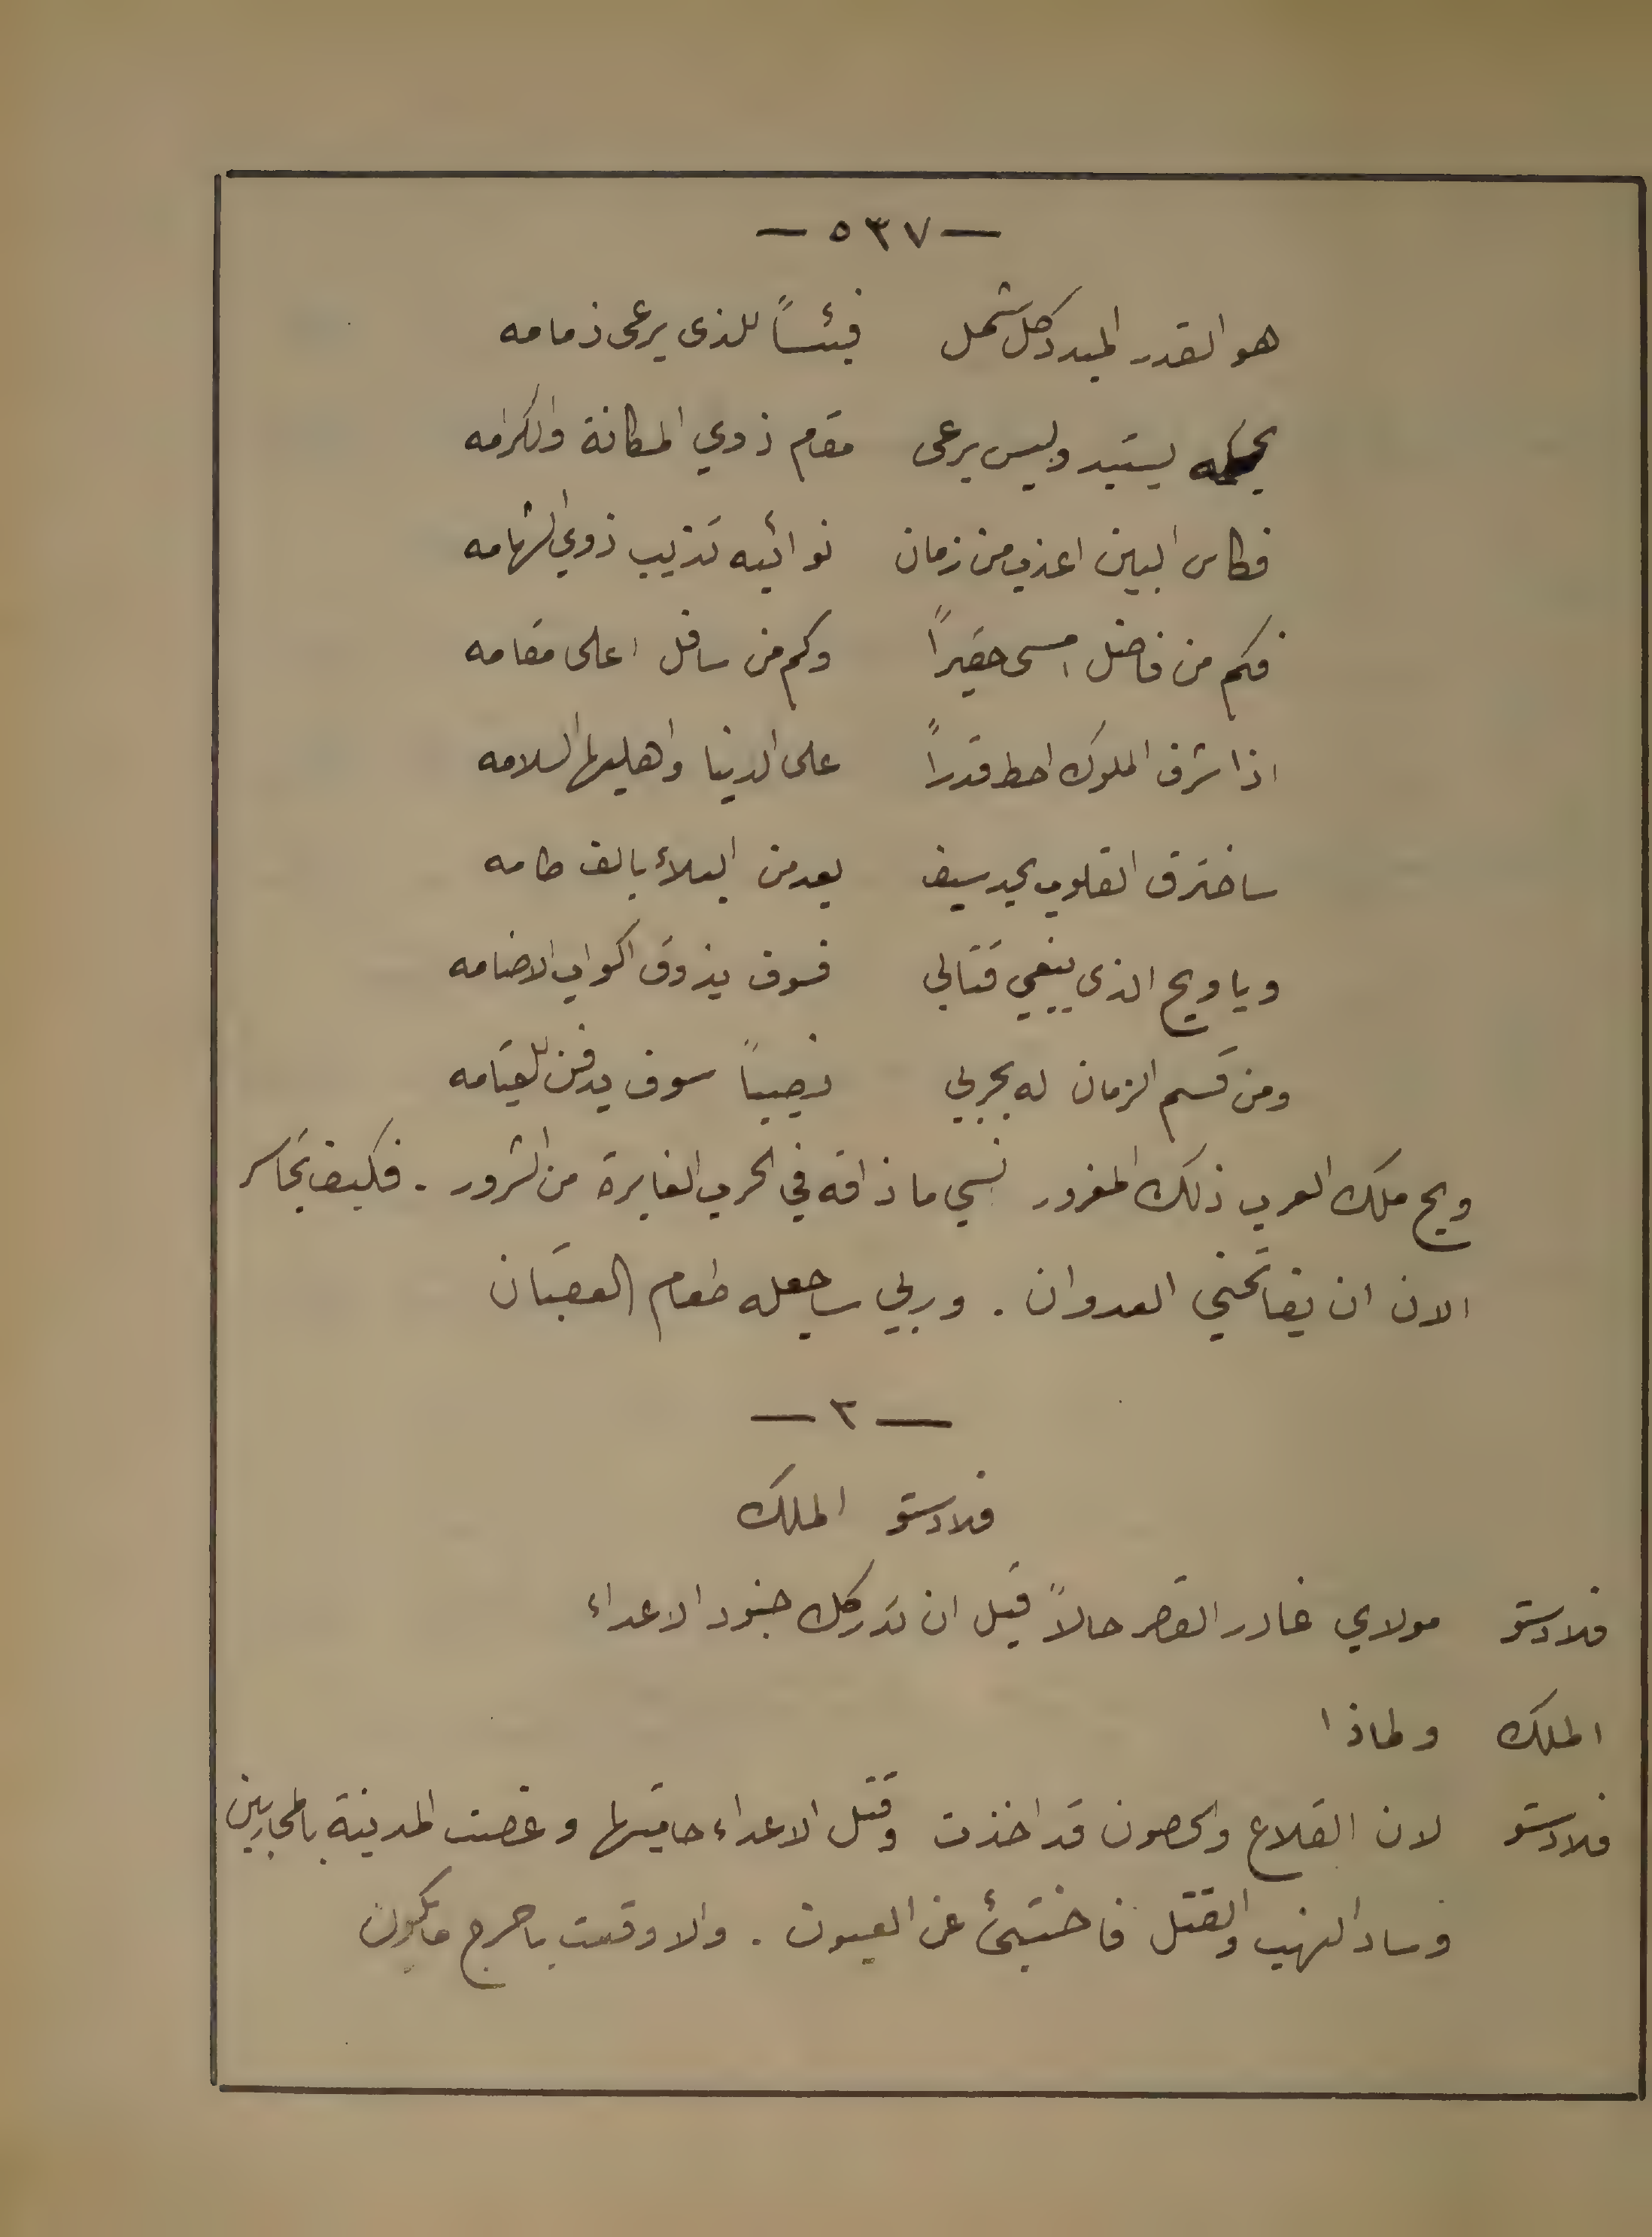 — ٥٣٧ —
هو القدر المبدد كل شمل فبئساً للذى يرعى ذمامه
بحكمه يستبد وليس يرعى مقام ذوي المكانة والكرامه
فكاس البين اعذب من زمان نوائبه تذيب ذوي الشهامه
فكم من فاضل امسى حقيراً وكم من سافل اعلى مقامه
اذا شرف الملوك احط قدراً على الدنيا واهليها السلامه
ساخترق القلوب بحد سيف يعد من البلاء بالف طامه
ويا ويح الذى يبغي قتالي فسوف يذوق اكواب الاضامه
ومن قسم الزمان له بحربي نصيباً سوف يدفن للقيامه
ويح ملك العرب ذلك المغرور نسي ما ذاقه في الحرب الغابرة من الشرور . فكيف تجاسر
الان ان يفاتحني العدوان . وربي ساجعله طعام العقبان
— ٢ —
فلادستو الملك
فلادستو مولاي غادر القصر حالاً قبل ان تدركك جنود الاعداء
الملك ولماذا
فلادستو لان القلاع والحصون قد اخذت وقتل الاعداء حاميتها وغصت المدينة بالمحاربين
وساد النهب والقتل فاختبئ عن العيون . والا وقعت باحرج ما يكون